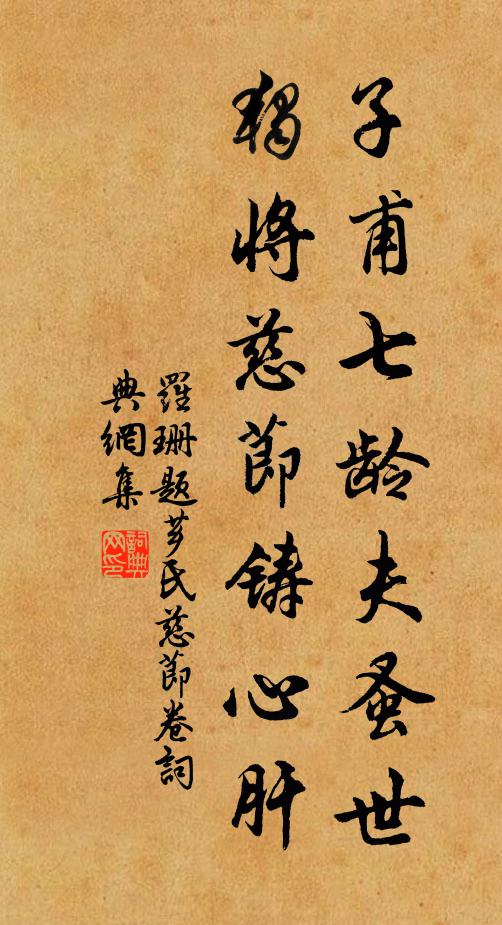 子甫七龄夫蚤世
独将慈节铸心肝
羅珊題芗氏慈節卷詞
典網集
詞典网印